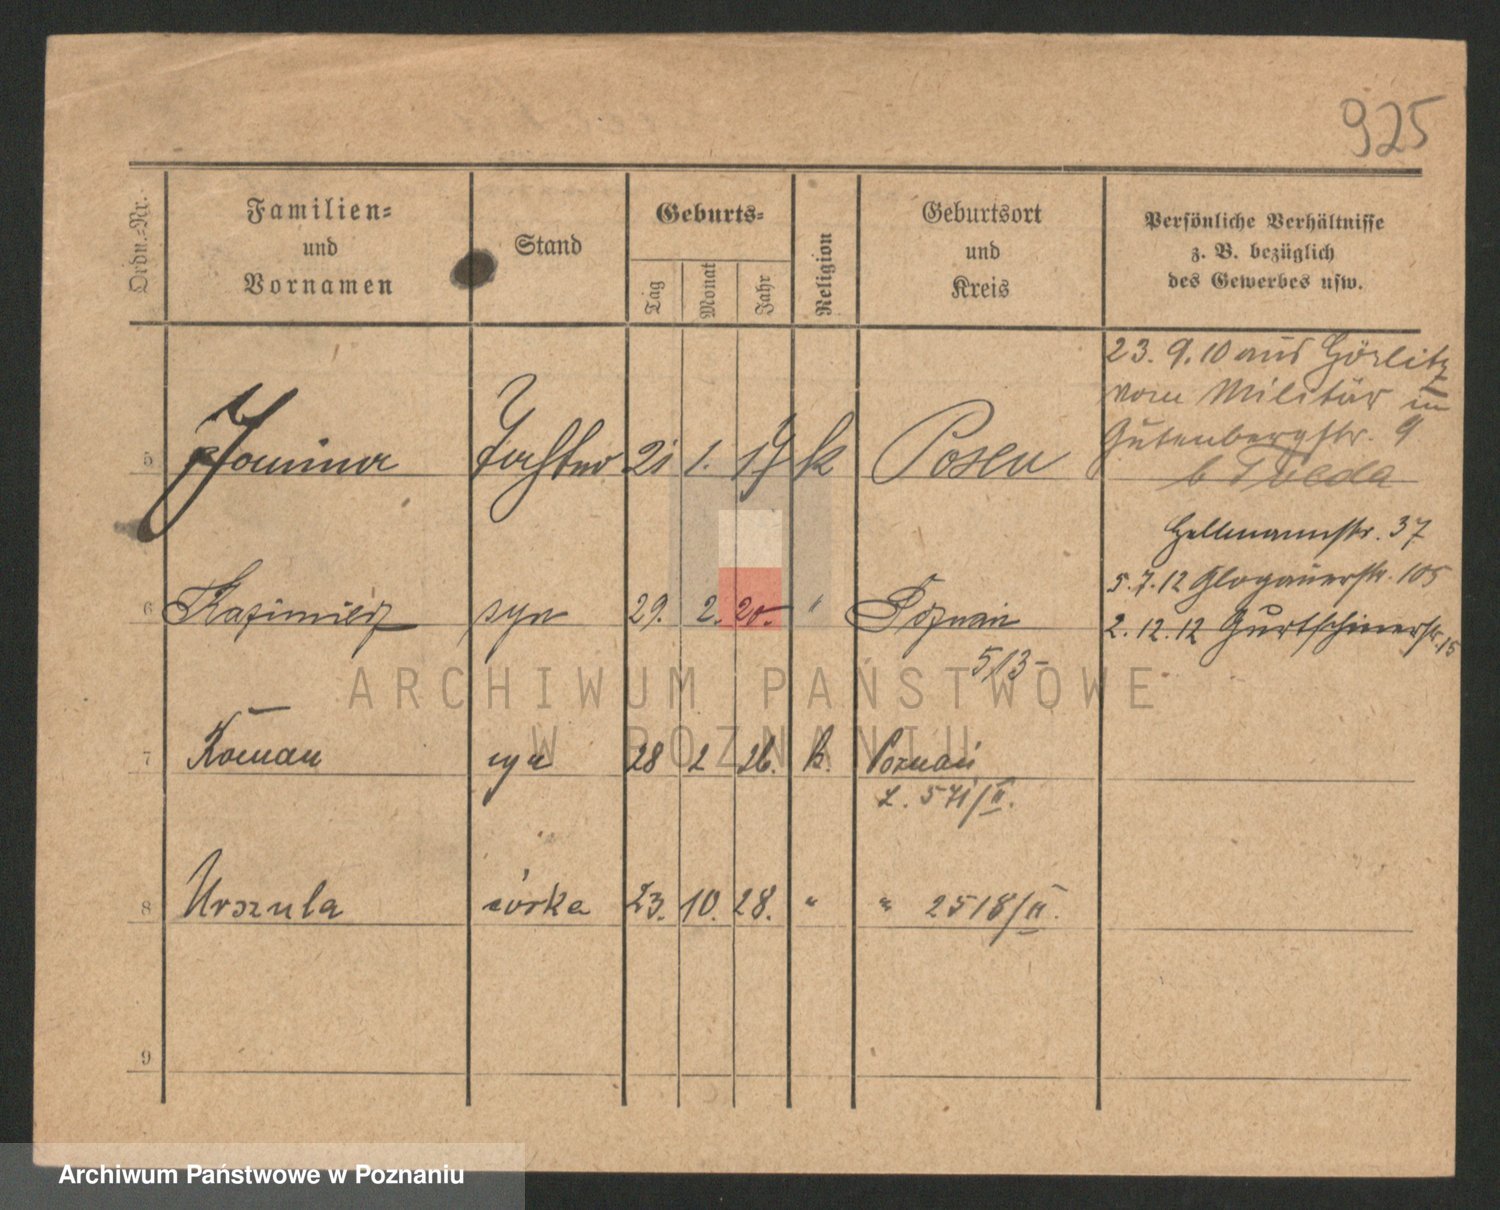 925
Ordn.-Nr.
Familien-
und
Vornamen
Stand
Geburts-
Tag
Monat
Jahr
Religion
Geburtsort
und
Kreis
Persönliche Verhältnisse
z. B. bezüglich
des Gewerbes usw.
23. 9. 10 aus Görlitz
vom Militär in
Gutenbergstr. 9
b
5 Janina Tochter 21 1. 19 k Posen
Hellmannstr. 37
5. 7. 12 Glogauerstr. 105
6 Kazimierz syn 29. 2. 20. " Poznań
513-
2. 12. 12 Gurtschinerstr. 15
7 Roman syn 28 2 26. k. Poznań
L. 571/II.
8 Urszula córka 23. 10. 28. " " 2518/II.
9
ARCHIWUM PAŃSTWOWE
W POZNANIU
Archiwum Państwowe w Poznaniu